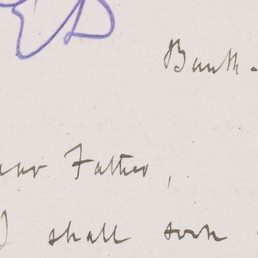 ED
Bank.
ear Father,
I shall soon